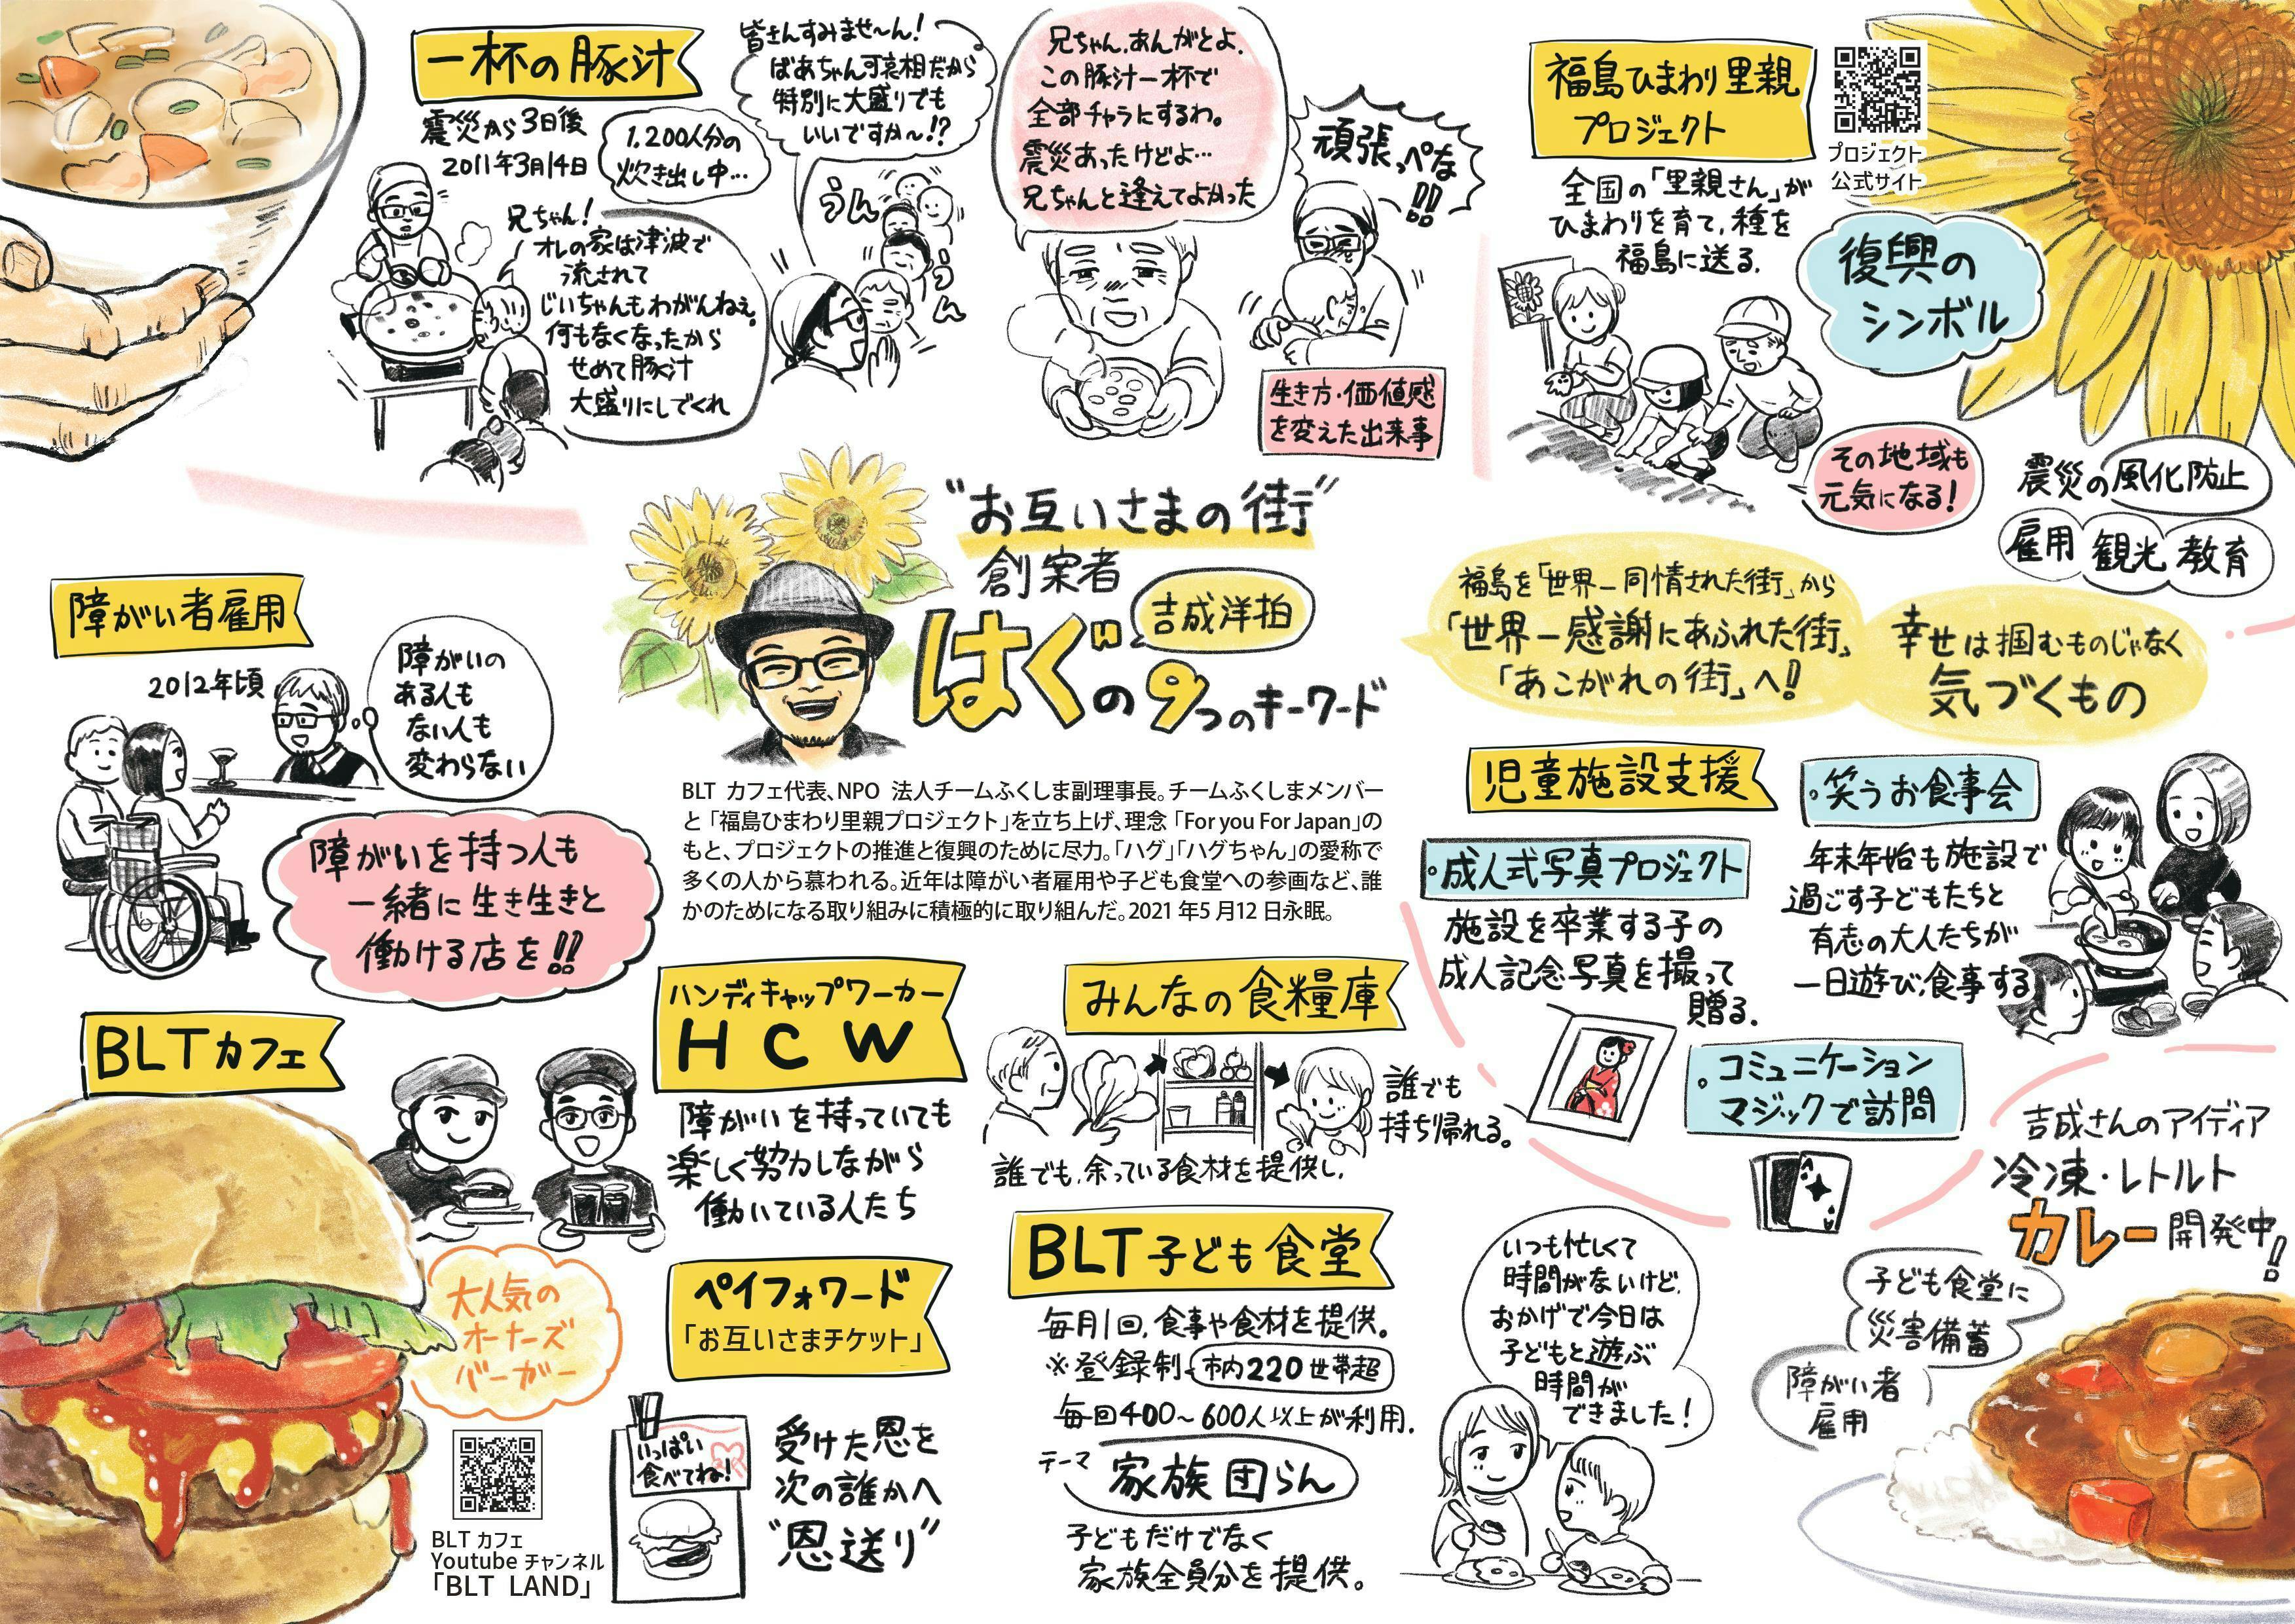 一杯の豚汁
震災から3日後
2011年3月14日
1,200人分の
炊き出し中…
兄ちゃん!
オレの家は津波で
流されて
じいちゃんもわがんねぇ。
何もなくなったから
せめて豚汁
大盛りにしでくれ
皆さんすみませ〜ん!
ばあちゃん可哀相だから
特別に大盛りでも
いいですか〜!?
うん
うん
兄ちゃん、あんがとよ、
この豚汁一杯で
全部チャラにするわ。
震災あったけどよ…
兄ちゃんと逢えてよかった
頑張っぺな
!!
生き方・価値感
を変えた出来事
福島ひまわり里親
プロジェクト
プロジェクト
公式サイト
全国の「里親さん」が
ひまわりを育て、種を
福島に送る。
復興の
シンボル
その地域も
元気になる!
震災の風化防止
雇用 観光 教育
福島を「世界一同情された街」から
「世界一感謝にあふれた街」
「あこがれの街」へ!
幸せは掴むものじゃなく
気づくもの
"お互いさまの街"
創案者
吉成洋拍
はぐの9つのキーワード
BLT カフェ代表、NPO 法人チームふくしま副理事長。チームふくしまメンバー
と「福島ひまわり里親プロジェクト」を立ち上げ、理念「For you For Japan」の
もと、プロジェクトの推進と復興のために尽力。「ハグ」「ハグちゃん」の愛称で
多くの人から慕われる。近年は障がい者雇用や子ども食堂への参画など、誰
かのためになる取り組みに積極的に取り組んだ。2021 年5 月12 日永眠。
障がい者雇用
2012年頃
障がいの
ある人も
ない人も
変わらない
障がいを持つ人も
一緒に生き生きと
働ける店を!!
BLTカフェ
大人気の
オーナーズ
バーガー
BLT カフェ
Youtube チャンネル
「BLT LAND」
ハンディキャップワーカー
HCW
障がいを持っていても
楽しく努力しながら
働いている人たち
ペイフォワード
「お互いさまチケット」
いっぱい
食べてね!
受けた恩を
次の誰かへ
"恩送り"
みんなの食糧庫
誰でも
持ち帰れる。
誰でも、余っている食材を提供し、
BLT子ども食堂
毎月1回、食事や食材を提供。
※登録制-市内220世帯超
毎回400〜600人以上が利用。
テーマ
家族団らん
子どもだけでなく
家族全員分を提供。
いつも忙しくて
時間がないけど、
おかげで今日は
子どもと遊ぶ
時間が
できました!
児童施設支援
・成人式写真プロジェクト
施設を卒業する子の
成人記念写真を撮って
贈る。
・笑うお食事会
年末年始も施設で
過ごす子どもたちと
有志の大人たちが
一日遊び、食事する
・コミュニケーション
マジックで訪問
吉成さんのアイディア
冷凍・レトルト
カレー開発中!
子ども食堂に
災害備蓄
障がい者
雇用